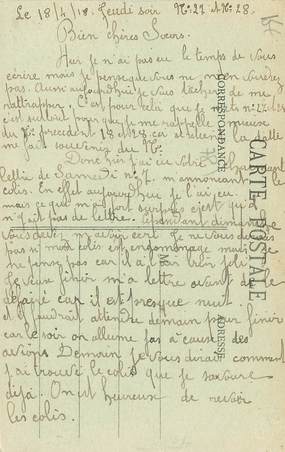 Le 18/4/18. Jeudi soir N: 27 et N: 28.
Bien chères Sœurs.
Hier je n'ai pas eu le temps de vous
écrire mais je pense que vous ne m'en voudrez
pas. Aussi aujourd'hui je vous tâcher de me
rattrapper. C'est pour cela que je mets N: 27 et 28
c'est surtout pour que je me rappelle
du N: précédent 18 et 28 car et la date
me fait souvenir du N:
Donc hier j'ai eu votre
lettre de Samedi N: 7. m'annonçant le
colis. En effet aujourd'hui je l'ai eu
mais ce que m'a fort surpris c'est qu'il
n'y ait pas de lettre. dimanche
vous avez m'avoir écrit. Je ne vous
pas ni mon colis est endommagé mais je
ne pense pas car il a l'air bien joli
Je veux finir ma lettre avant de le
car il est presque nuit
et il faudrait attendre demain pour finir
car le soir on allume pas à cause des
avions Demain je vous dirai comment
j'ai trouvé le colis que je savoure
déjà. On est heureuse de revoir
les colis.
CARTE POSTALE
CORRESPONDANCE
ADRESSE
M